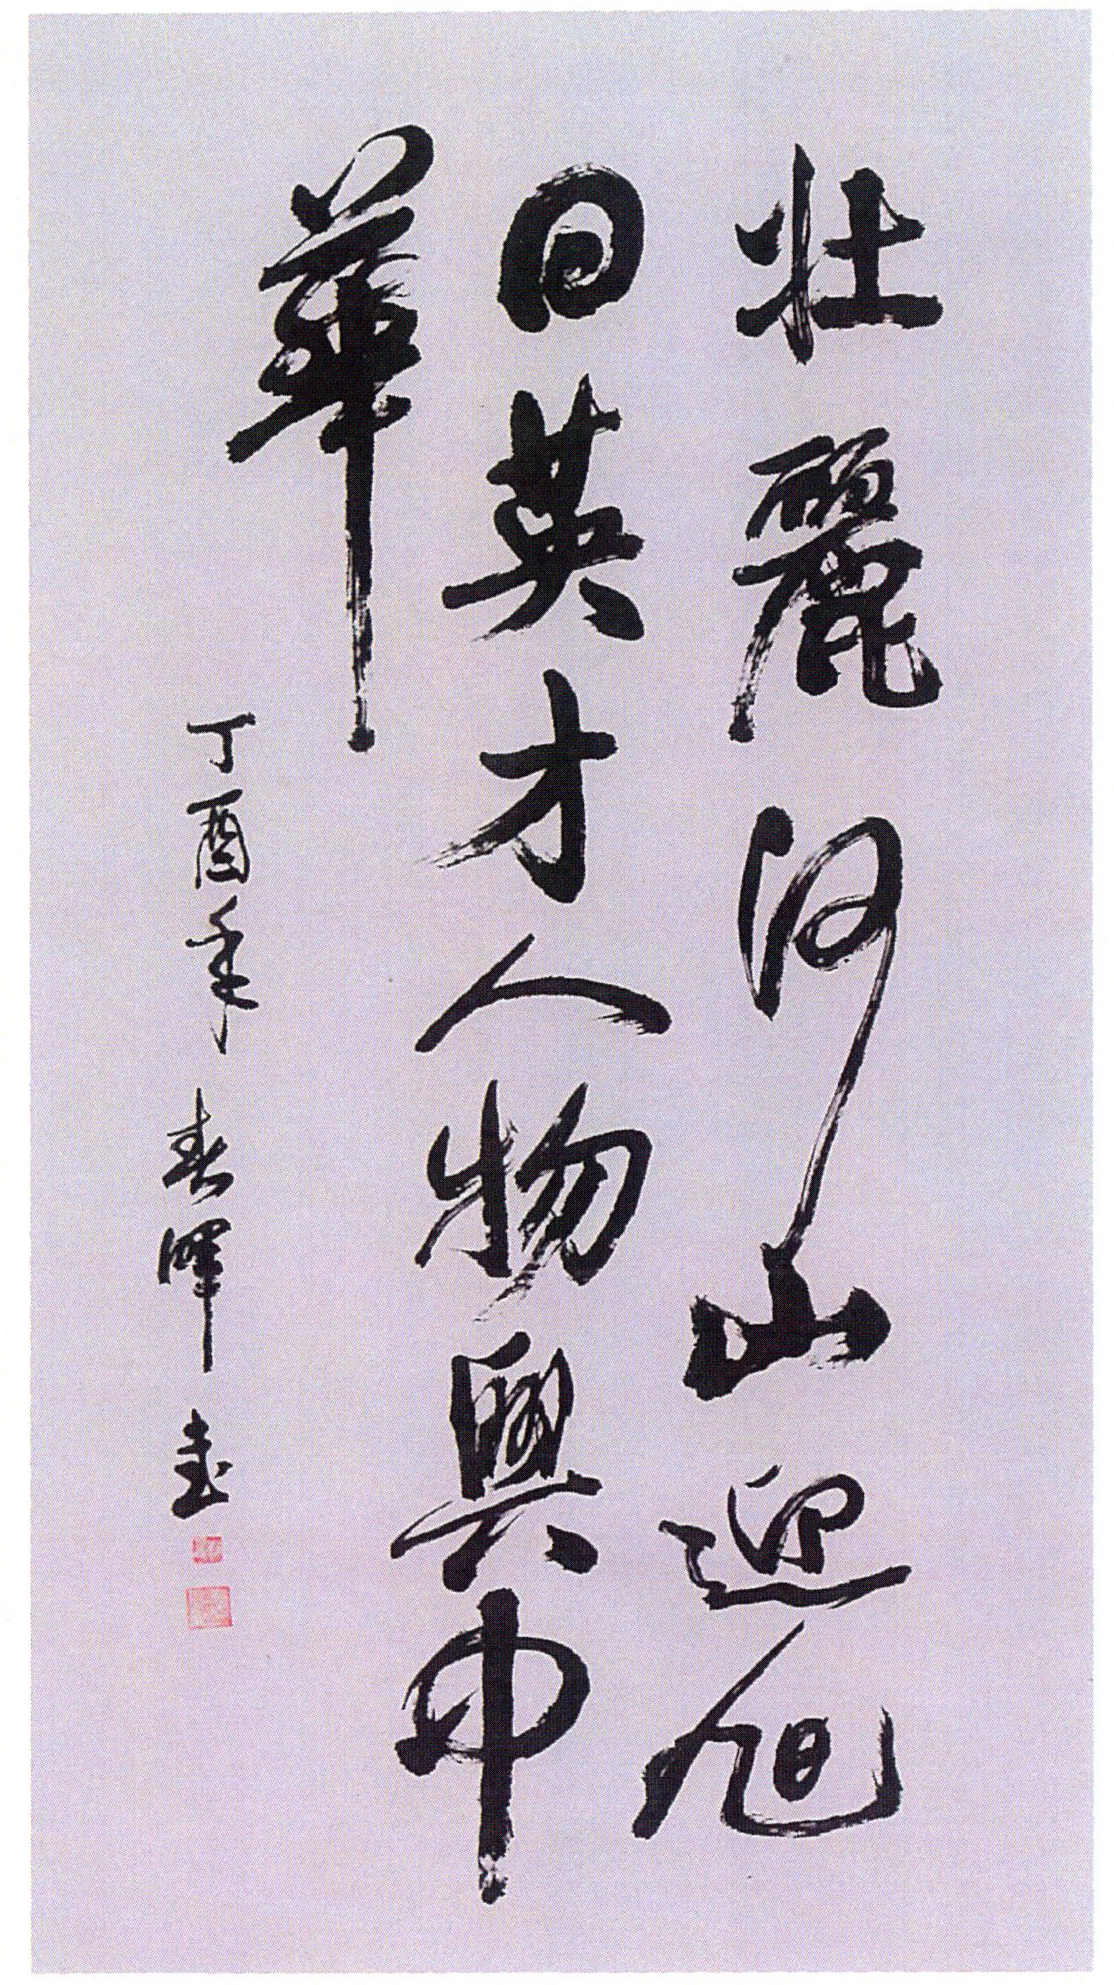 壮麗河山迎旭
日英才人物興中
華
丁酉年 春暉书